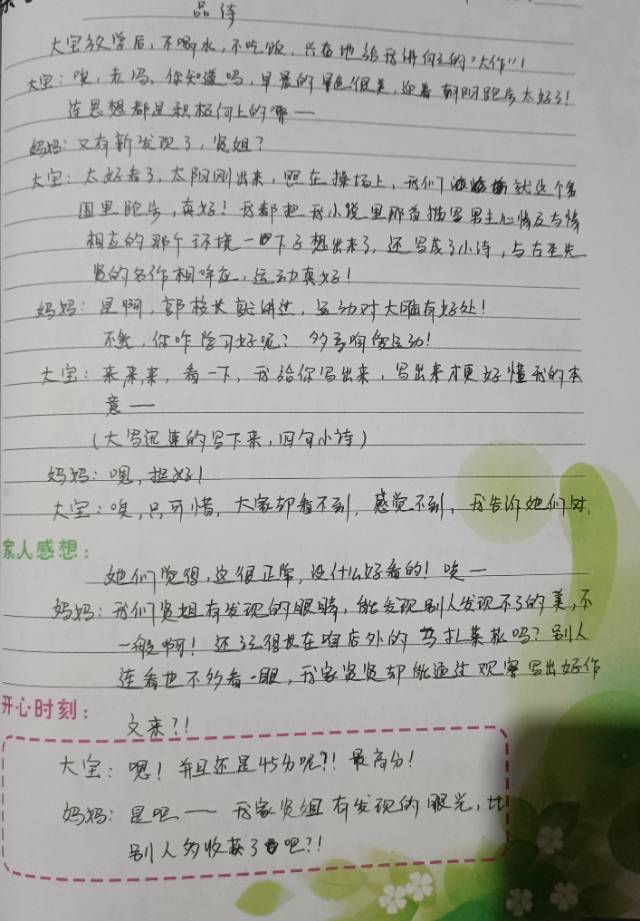 品诗
大宝放学后，不喝水，不吃饭，兴奋地给我讲何的"大作"！
大宝：唉，老冯，你知道吗，早晨的景色很美，迎着朝阳跑步太好了！
连思想都是积极向上的哪—
妈妈：又有新发现了，贤姐？
大宝：太好看了，太阳刚出来，照在操场上，我们就这个氛
围里跑步，真好！我都把我小说里那首描写男主心情及与情
相应的那个环境一下子想出来了，还写成了小诗，与古圣先
贤的名作相呼应，运动真好！
妈妈：是啊，郭校长就讲过，运动对大脑有好处！
不然，你咋学习好呢？多多响应运动！
大宝：来来来，看一下，我给你写出来，写出来才更好懂我的本
意—
（大宝迅速的写下来，四句小诗）
妈妈：嗯，挺好！
大宝：唉，只可惜，大家却看不到，感觉不到，我告诉她们时，
家人感想：
她们觉得，这很正常，没什么好看的！唉—
妈妈：我们贤姐有发现的眼睛，能发现别人发现不了的美，不
一般啊！还记得长在咱店外的苇扎菜根吗？别人
连看也不多看一眼，我家贤贤却能通过观察写出好作
开心时刻：
文来？！
大宝：嗯！并且还是45分呢？！最高分！
妈妈：是吧—我家贤姐有发现的眼光，比
别人多收获了吧？！